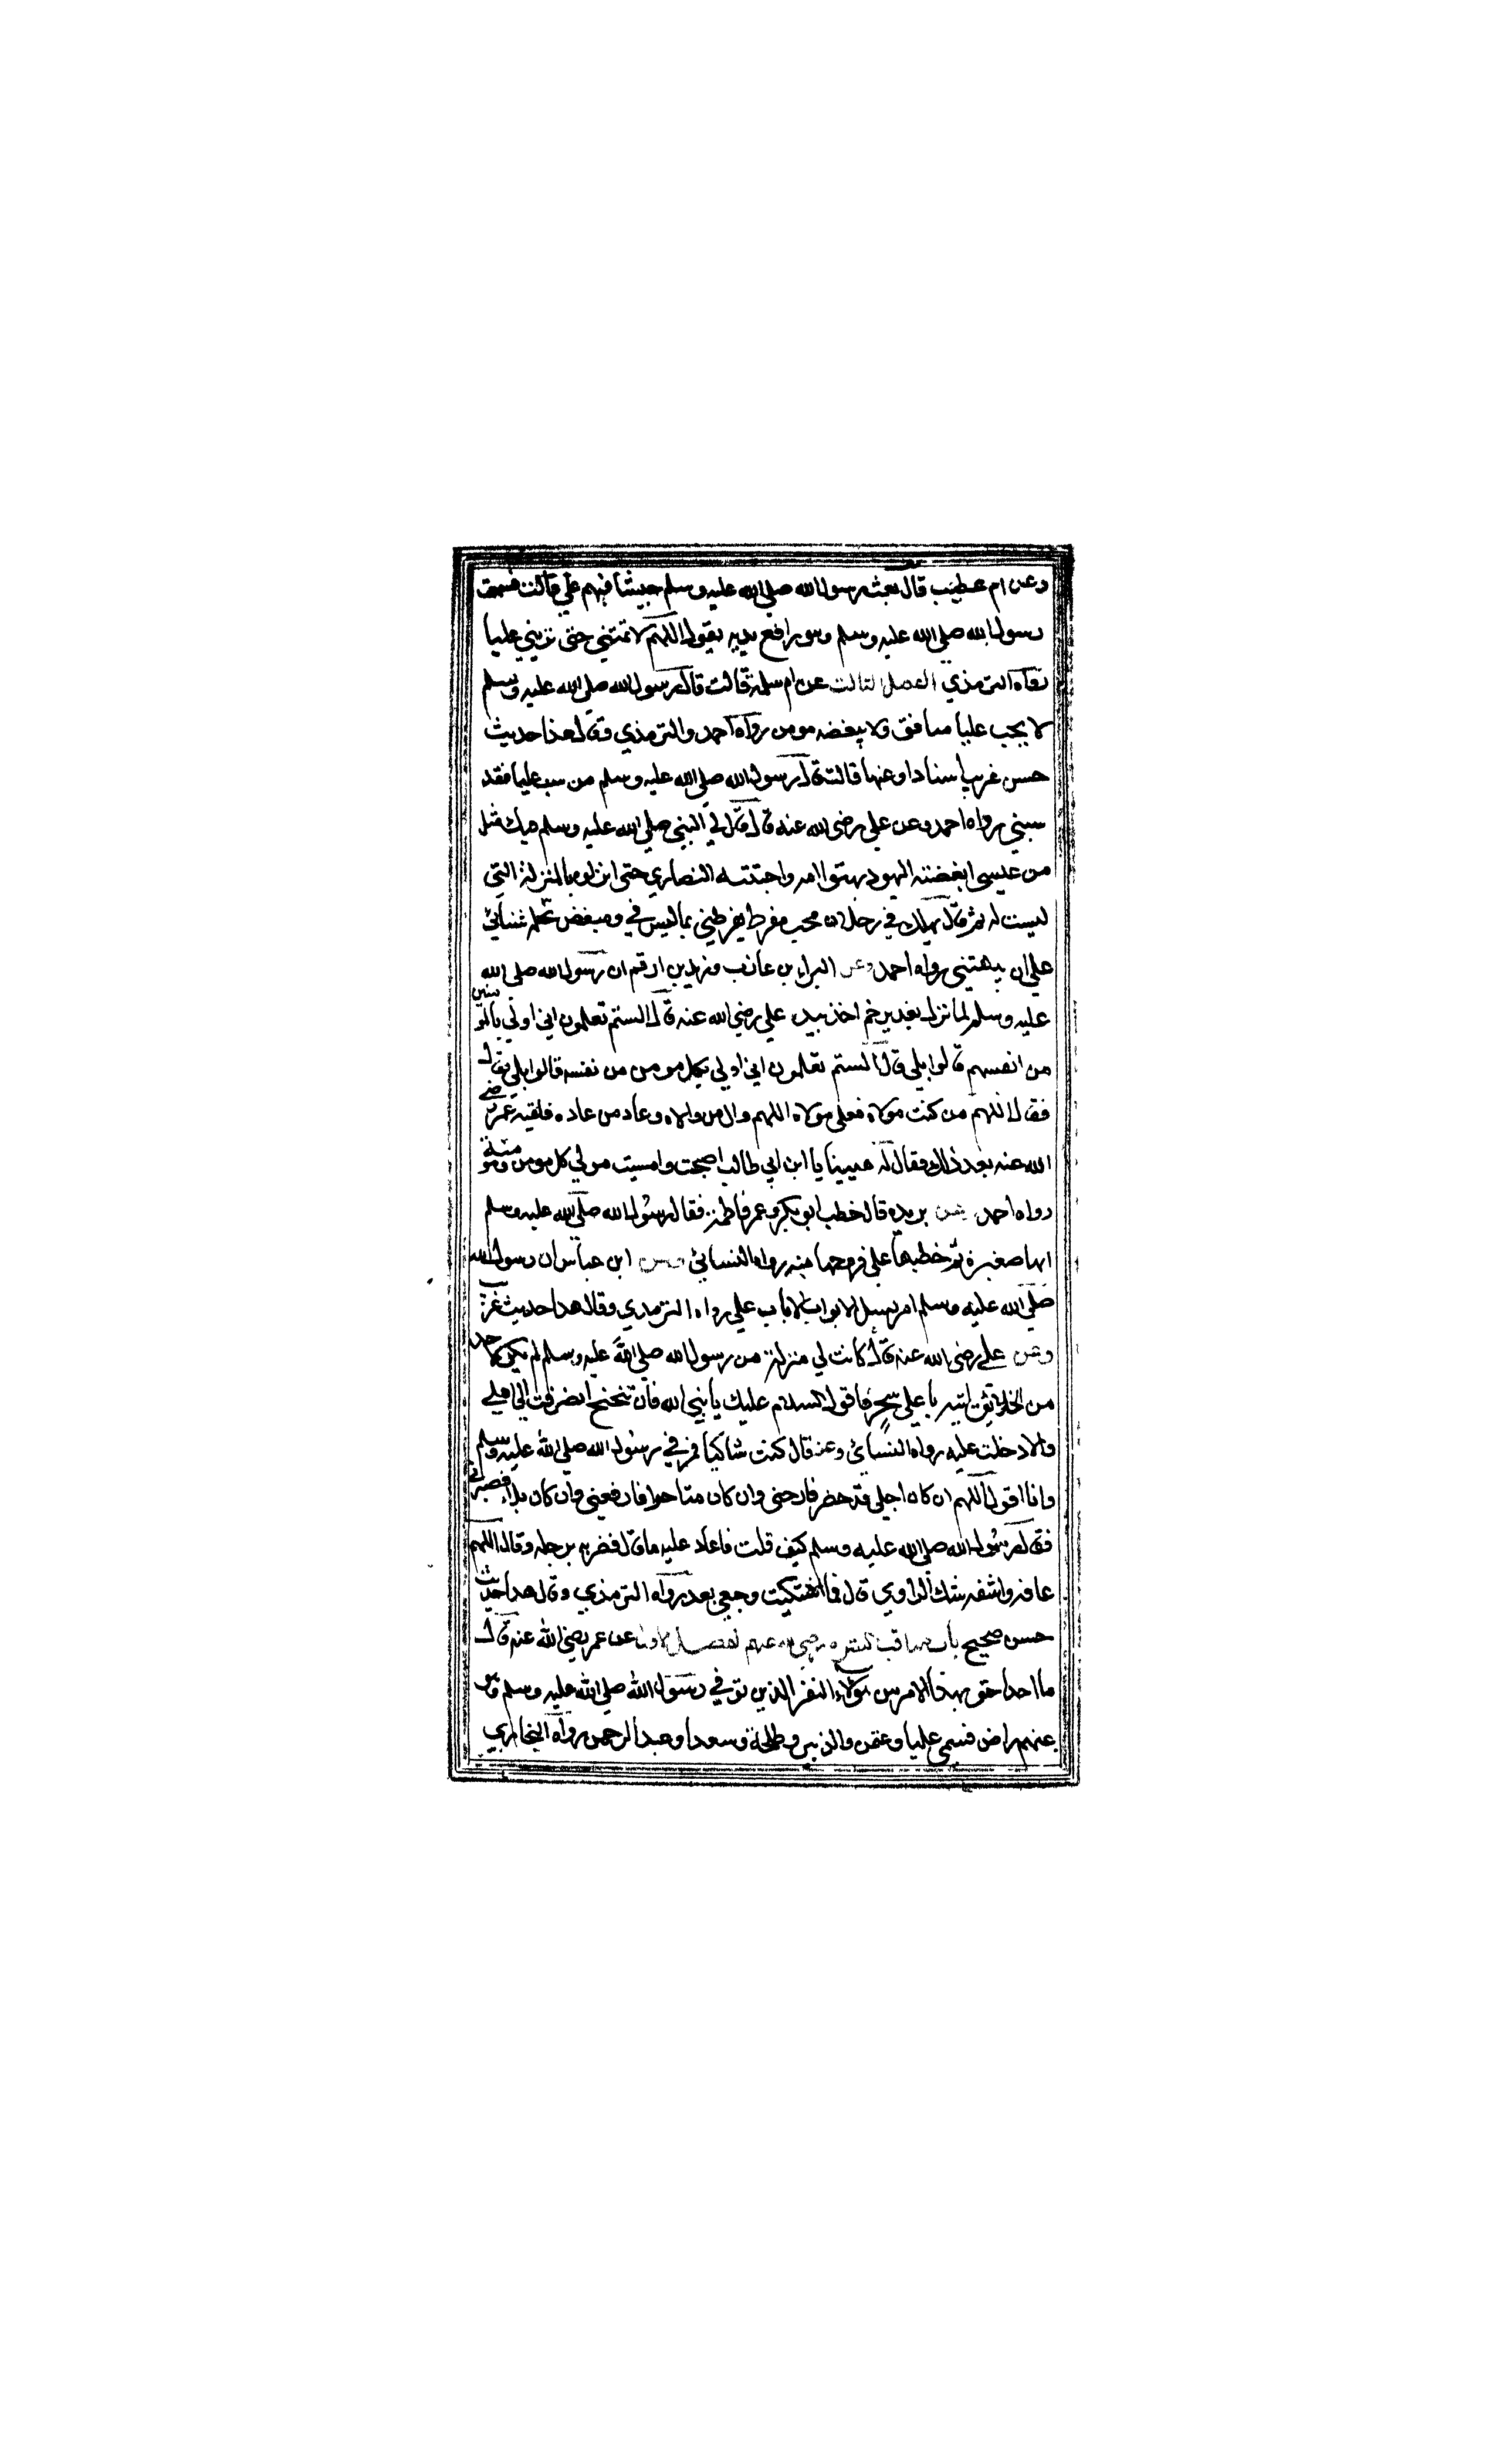 وعن ام عطية قال بعث رسول الله صلى الله عليه وسلم جيشا فيهم علي قالت فسمعت
رسول الله صلى الله عليه وسلم وهو رافع يديه يقول اللهم لا تمتني حتى تريني عليا
رواه الترمذي الفصل الثالث عن ام سلمة قالت قال رسول الله صلى الله عليه وسلم
لا يحب عليا منافق ولا يبغضه مومن رواه احمد والترمذي وقال هذا حديث
حسن غريب اسنادا وعنها قالت قال رسول الله صلى الله عليه وسلم من سب عليا فقد
سبني رواه احمد وعن علي رضي الله عنه قال قال لي النبي صلى الله عليه وسلم فيك مثل
من عيسى ابغضته اليهود بهتوا امه واحبته النصارى حتى انزلوه بالمنزلة التي
ليست له ثم قال يهلك في رجلان محب مفرط يفرطني بما ليس في ومبغض يحمله شنأني
على ان يبهتني رواه احمد وعن البراء بن عازب وزيد بن ارقم ان رسول الله صلى الله
عليه وسلم لما نزل بغدير خم اخذ بيد علي رضي الله عنه قال الستم تعلمون اني اولى بالمومنين
من انفسهم قالوا بلى قال الستم تعلمون اني اولى بكل مومن من نفسه قالوا بلى
فقال اللهم من كنت مولاه فعلي مولاه اللهم وال من والاه وعاد من عاداه فلقيه عمر رضي
الله عنه بعد ذلك فقال له هنيئا يا ابن ابي طالب اصبحت وامسيت مولى كل مومن ومومنة
رواه احمد وعن بريده قال خطب ابو بكر وعمر فاطمة فقال رسول الله صلى الله عليه وسلم
انها صغيرة ثم خطبها علي فزوجها منه رواه النسائي وعن ابن عباس ان رسول الله
صلى الله عليه وسلم امر بسد الابواب الا باب علي رواه الترمذي وقال هذا حديث غريب
وعن علي رضي الله عنه قال كانت لي منزلة من رسول الله صلى الله عليه وسلم لم يكن لاحد
من الخلائق اتيه باعلى سحر فاقول السلام عليك يا نبي الله فان تنحنح انصرفت الى اهلي
والا دخلت عليه رواه النسائي وعنه قال كنت شاكيا فمر في رسول الله صلى الله عليه وسلم
وانا اقول اللهم ان كان اجلي قد حضر فارحني وان كان متاخرا فارفعني وان كان بلاء فصبرني
فقال رسول الله صلى الله عليه وسلم كيف قلت فاعاد عليه ما قال فضربه برجله وقال اللهم
عافه واشفه شك الراوي قال فما اشتكيت وجعي بعد رواه الترمذي وقال هذا حديث
حسن صحيح باب مناقب العشره رضي الله عنهم الفصل الاول عن عمر رضي الله عنه قال
ما احد احق بهذا الامر من هولاء النفر الذين توفي رسول الله صلى الله عليه وسلم وهو
عنهم راض فسمى عليا وعثمن والزبير وطلحة وسعدا وعبد الرحمن رواه البخاري